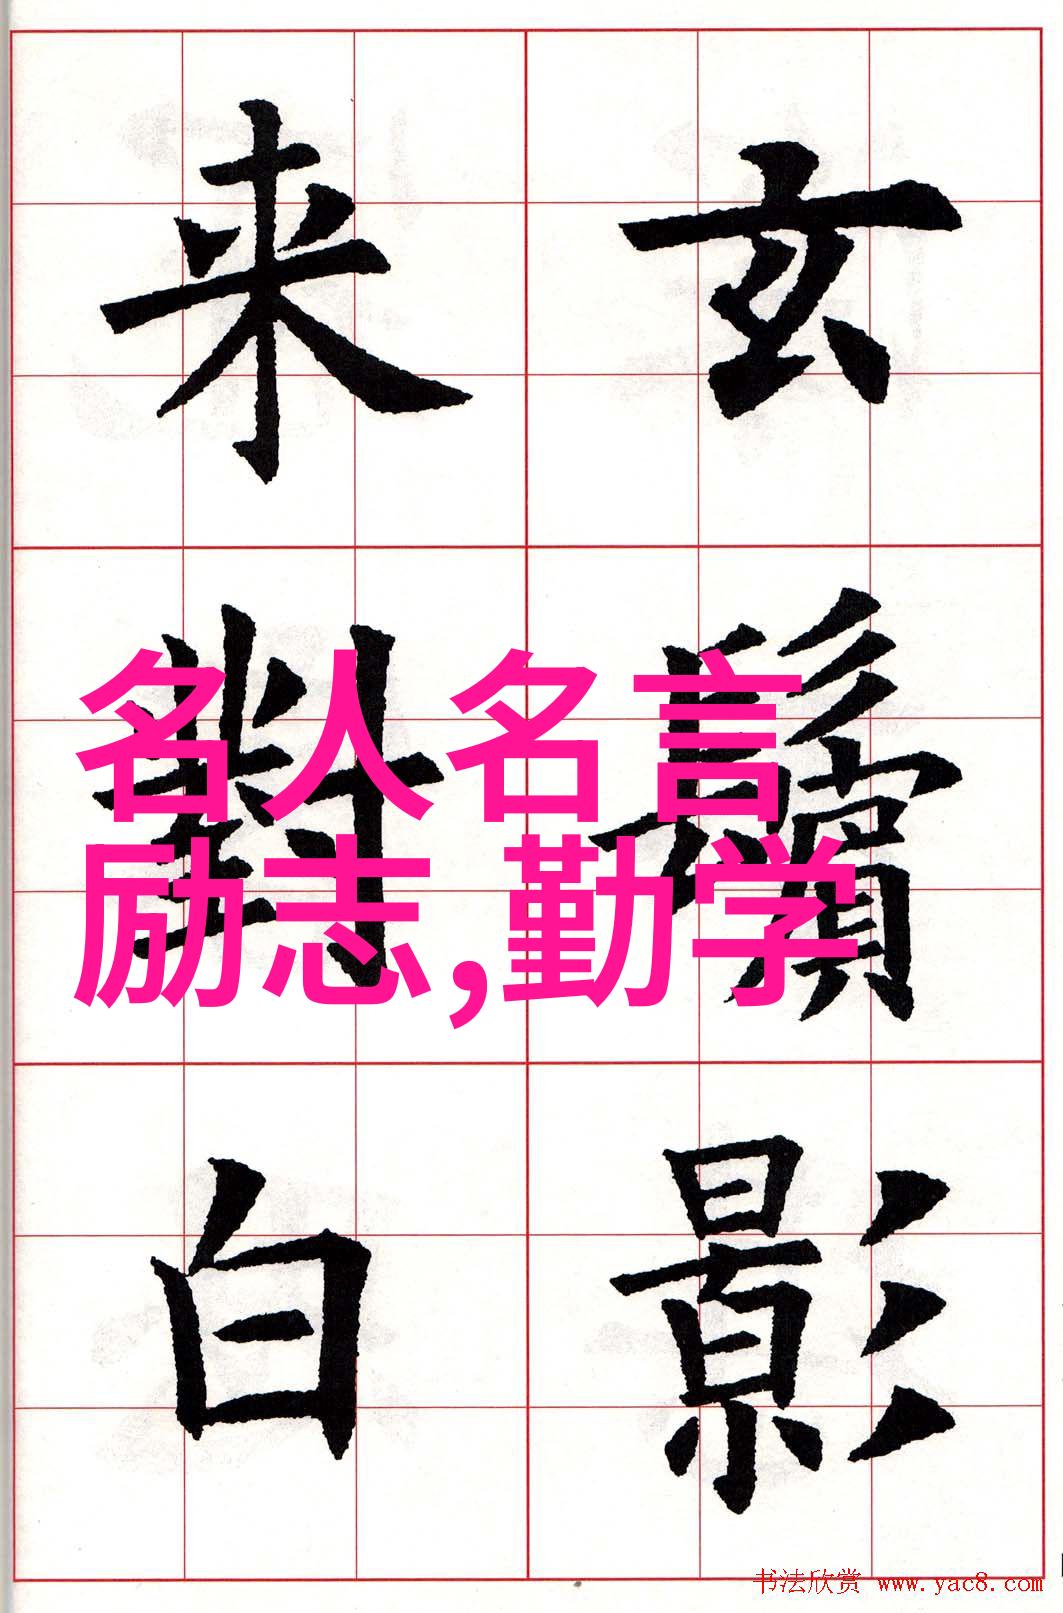 玄鬢影
来對白
名人名言
励志,勤学
书法欣赏 www.yac8.com